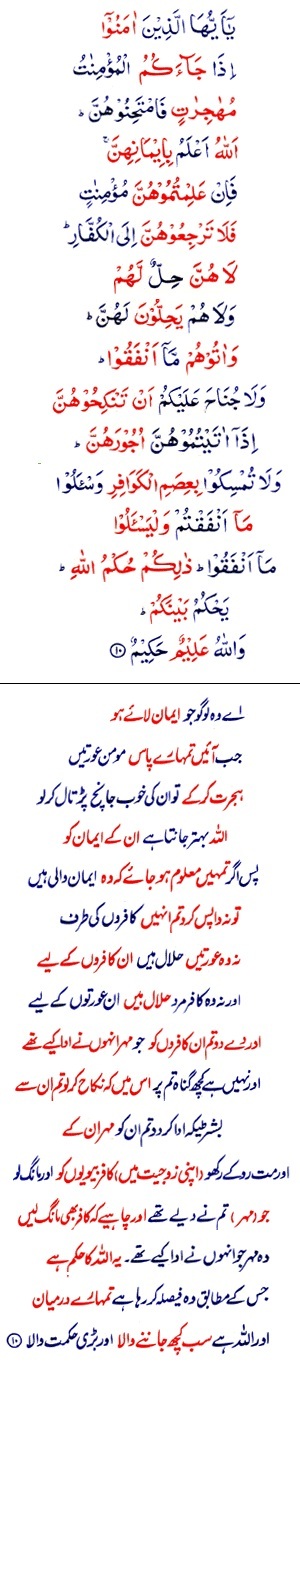 يٰٓاَيُّهَا الَّذِيْنَ اٰمَنُوْٓا
اِذَا جَآءَكُمُ الْمُؤْمِنٰتُ
مُهٰجِرٰتٍ فَامْتَحِنُوْهُنَّ ؕ
اَللّٰهُ اَعْلَمُ بِاِيْمَانِهِنَّ ۚ
فَاِنْ عَلِمْتُمُوْهُنَّ مُؤْمِنٰتٍ
فَلَا تَرْجِعُوْهُنَّ اِلَى الْكُفَّارِ ؕ
لَا هُنَّ حِلٌّ لَّهُمْ
وَلَا هُمْ يَحِلُّوْنَ لَهُنَّ ؕ
وَاٰتُوْهُمْ مَّآ اَنْفَقُوْا ؕ
وَلَا جُنَاحَ عَلَيْكُمْ اَنْ تَنْكِحُوْهُنَّ
اِذَآ اٰتَيْتُمُوْهُنَّ اُجُوْرَهُنَّ ؕ
وَلَا تُمْسِكُوْا بِعِصَمِ الْكَوَافِرِ وَسْـَٔلُوْا
مَآ اَنْفَقْتُمْ وَلْيَسْـَٔلُوْا
مَآ اَنْفَقُوْا ؕ ذٰلِكُمْ حُكْمُ اللّٰهِ ؕ
يَحْكُمُ بَيْنَكُمْ ؕ
وَاللّٰهُ عَلِيْمٌ حَكِيْمٌ ۝۱۰
اے وہ لوگو جو ایمان لائے ہو
جب آئیں تمہارے پاس مومن عورتیں
ہجرت کر کے تو ان کی خوب جانچ پڑتال کر لو
اللہ بہتر جانتا ہے ان کے ایمان کو
پس اگر تمہیں معلوم ہو جائے کہ وہ ایمان والی ہیں
تو نہ واپس کرو تم انہیں کافروں کی طرف
نہ وہ عورتیں حلال ہیں ان کافروں کے لیے
اور نہ وہ کافر مرد حلال ہیں ان عورتوں کے لیے
اور دے دو تم ان کافروں کو جو مہر انہوں نے ادا کیے تھے
اور نہیں ہے کچھ گناہ تم پر اس میں کہ نکاح کر لو تم ان سے
بشرطیکہ ادا کر دو تم ان کو مہر ان کے
اور مت روکے رکھو (اپنی زوجیت میں) کافر بیویوں کو اور مانگ لو
جو (مہر) تم نے دیے تھے اور چاہیے کہ کافر بھی مانگ لیں
وہ مہر جو انہوں نے ادا کیے تھے۔ یہ اللہ کا حکم ہے
جس کے مطابق وہ فیصلہ کر رہا ہے تمہارے درمیان
اور اللہ ہے سب کچھ جاننے والا اور بڑی حکمت والا ۝۱۰